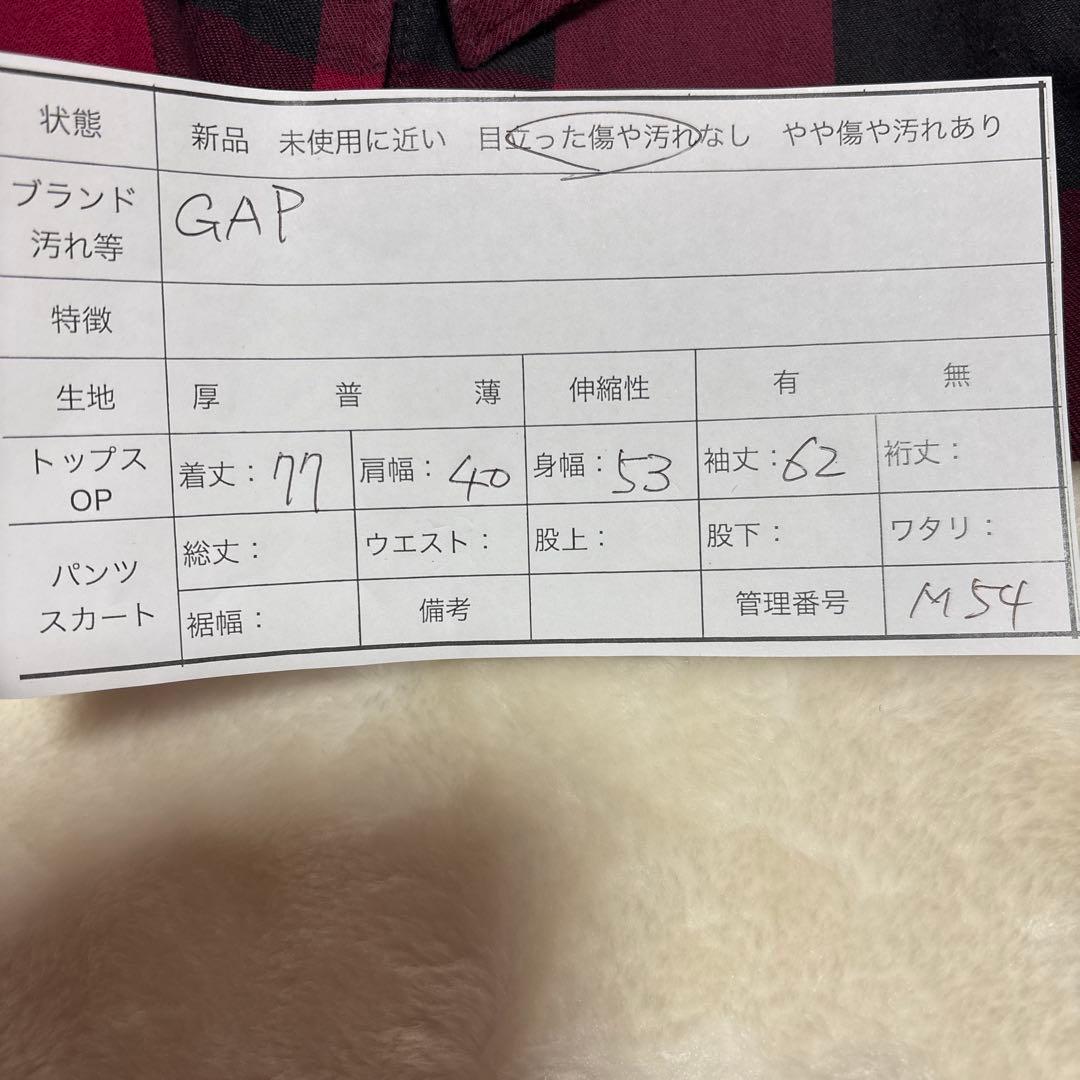 状態 新品 未使用に近い 目立った傷や汚れなし やや傷や汚れあり
ブランド
汚れ等 GAP
特徴
生地 厚 普 薄 伸縮性 有 無
トップス
OP 着丈：77 肩幅：40 身幅：53 袖丈：62 裄丈：
パンツ
スカート
総丈： ウエスト： 股上： 股下： ワタリ：
裾幅： 備考 管理番号 M54